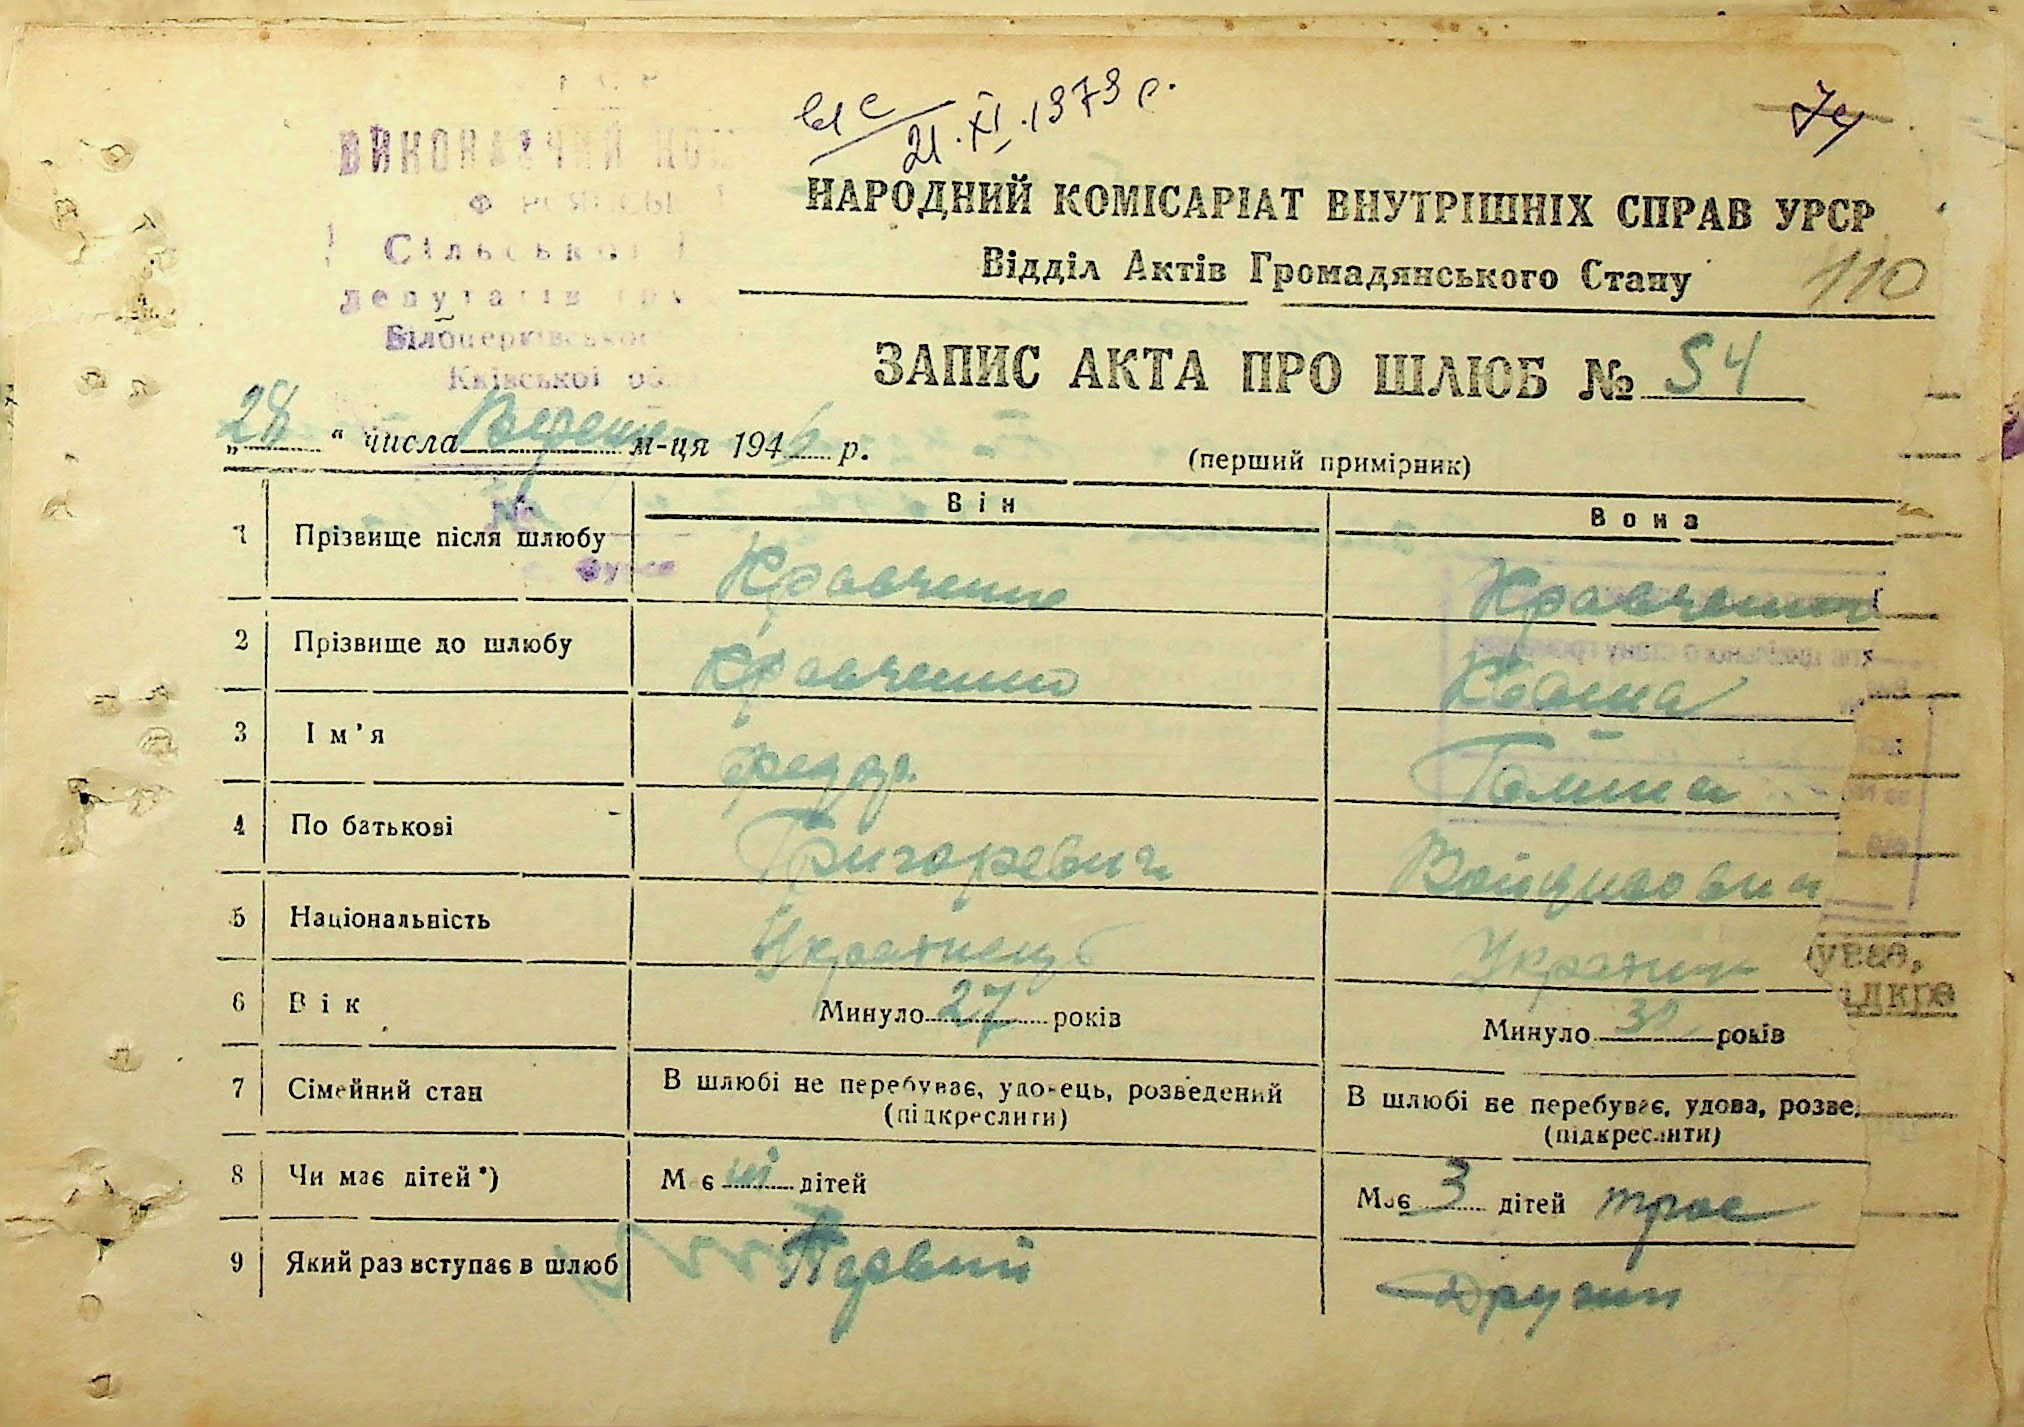 21.XI.1973 р.
74
ВИКОНАВЧИЙ
Сільської
депутатів
Білоцерківської
Київської обл
НАРОДНИЙ КОМІСАРІАТ ВНУТРІШНІХ СПРАВ УРСР
Відділ Актів Громадянського Стану
110
ЗАПИС АКТА ПРО ШЛЮБ № 54
„28“ числа м-ця 1946 р.
(перший примірник)
Він Вона
1 Прізвище після шлюбу Кравченко Кравченко
2 Прізвище до шлюбу Кравченко
3 Ім’я Федор. Галина
4 По батькові Григоревич
5 Національність Украинець Украинк
6 Вік Минуло 27 років Минуло років
7 Сімейний стан В шлюбі не перебуває, удовець, розведений В шлюбі не перебуває, удова, розве
(підкреслити) (підкреслити)
уває,
ідкре
8 Чи має дітей*) Має дітей Має 3 дітей трое
9 Який раз вступає в шлюб Первий Другий